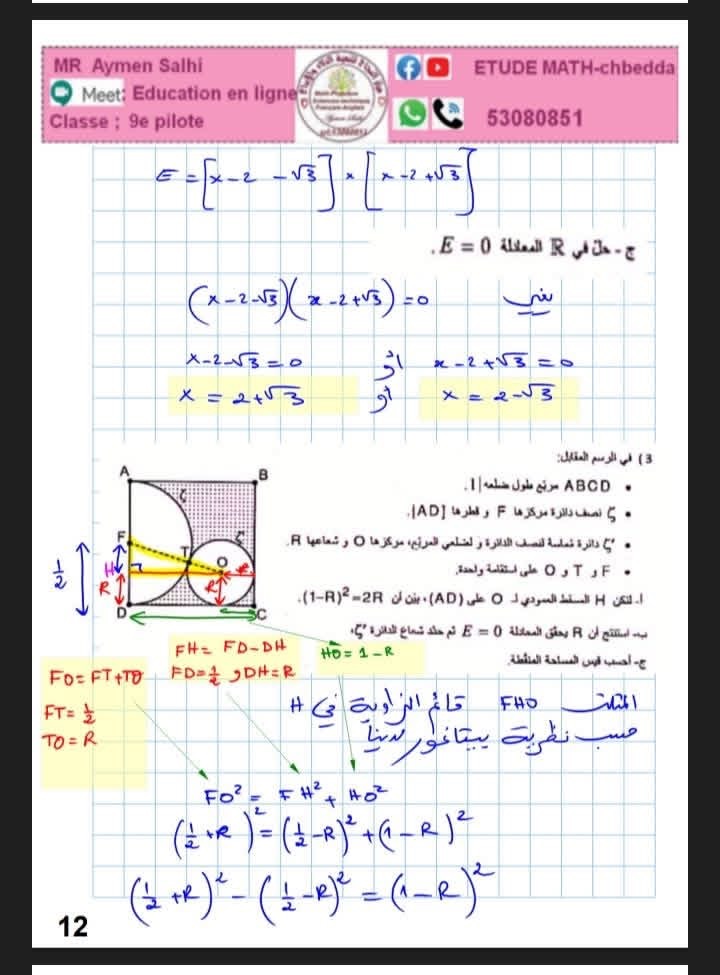 MR Aymen Salhi
Meet: Education en ligne
Classe ; 9e pilote
ETUDE MATH-chbedda
53080851
E = [x-2 -√3] × [x-2+√3]
ج - حل في ℝ المعادلة E = 0 .
(x-2-√3)(x-2+√3) = 0 يعني
x-2-√3 = 0 أو x-2+√3 = 0
x = 2+√3 أو x = 2-√3
3 ) في الرسم المقابل:
• ABCD مربع طول ضلعه 1.
• ζ نصف دائرة مركزها F و قطرها [AD].
• ζ' دائرة تماسة لنصف الدائرة و لضلعي المربع، مركزها O و شعاعها R.
• F و T و O على استقامة واحدة.
أ- لتكن H المسقط العمودي لـ O على (AD)، بيّن أن (1-R)²=2R.
ب- استنتج أن R يحقق المعادلة E = 0 ثم حدد شعاع الدائرة ζ'،
ج- أحسب قيس المساحة المنقطة.
A
B
ζ
F
ζ'
T
O
1/2
H
R
R
R
D
C
FH = FD-DH
FD=1/2 و DH=R
HO = 1-R
FO = FT+TO
FT = 1/2
TO = R
المثلث FHO قائم الزاوية في H
حسب نظرية بيتاغور لدينا
FO² = FH² + HO²
(1/2 +R)² = (1/2 -R)² + (1-R)²
(1/2 +R)² - (1/2 -R)² = (1-R)²
12